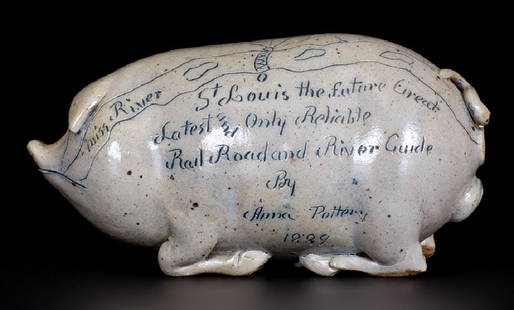 Miss River
St Louis the future Great
Latest & Only Reliable
Rail Road and River Guide
By
Anna Pottery
1889